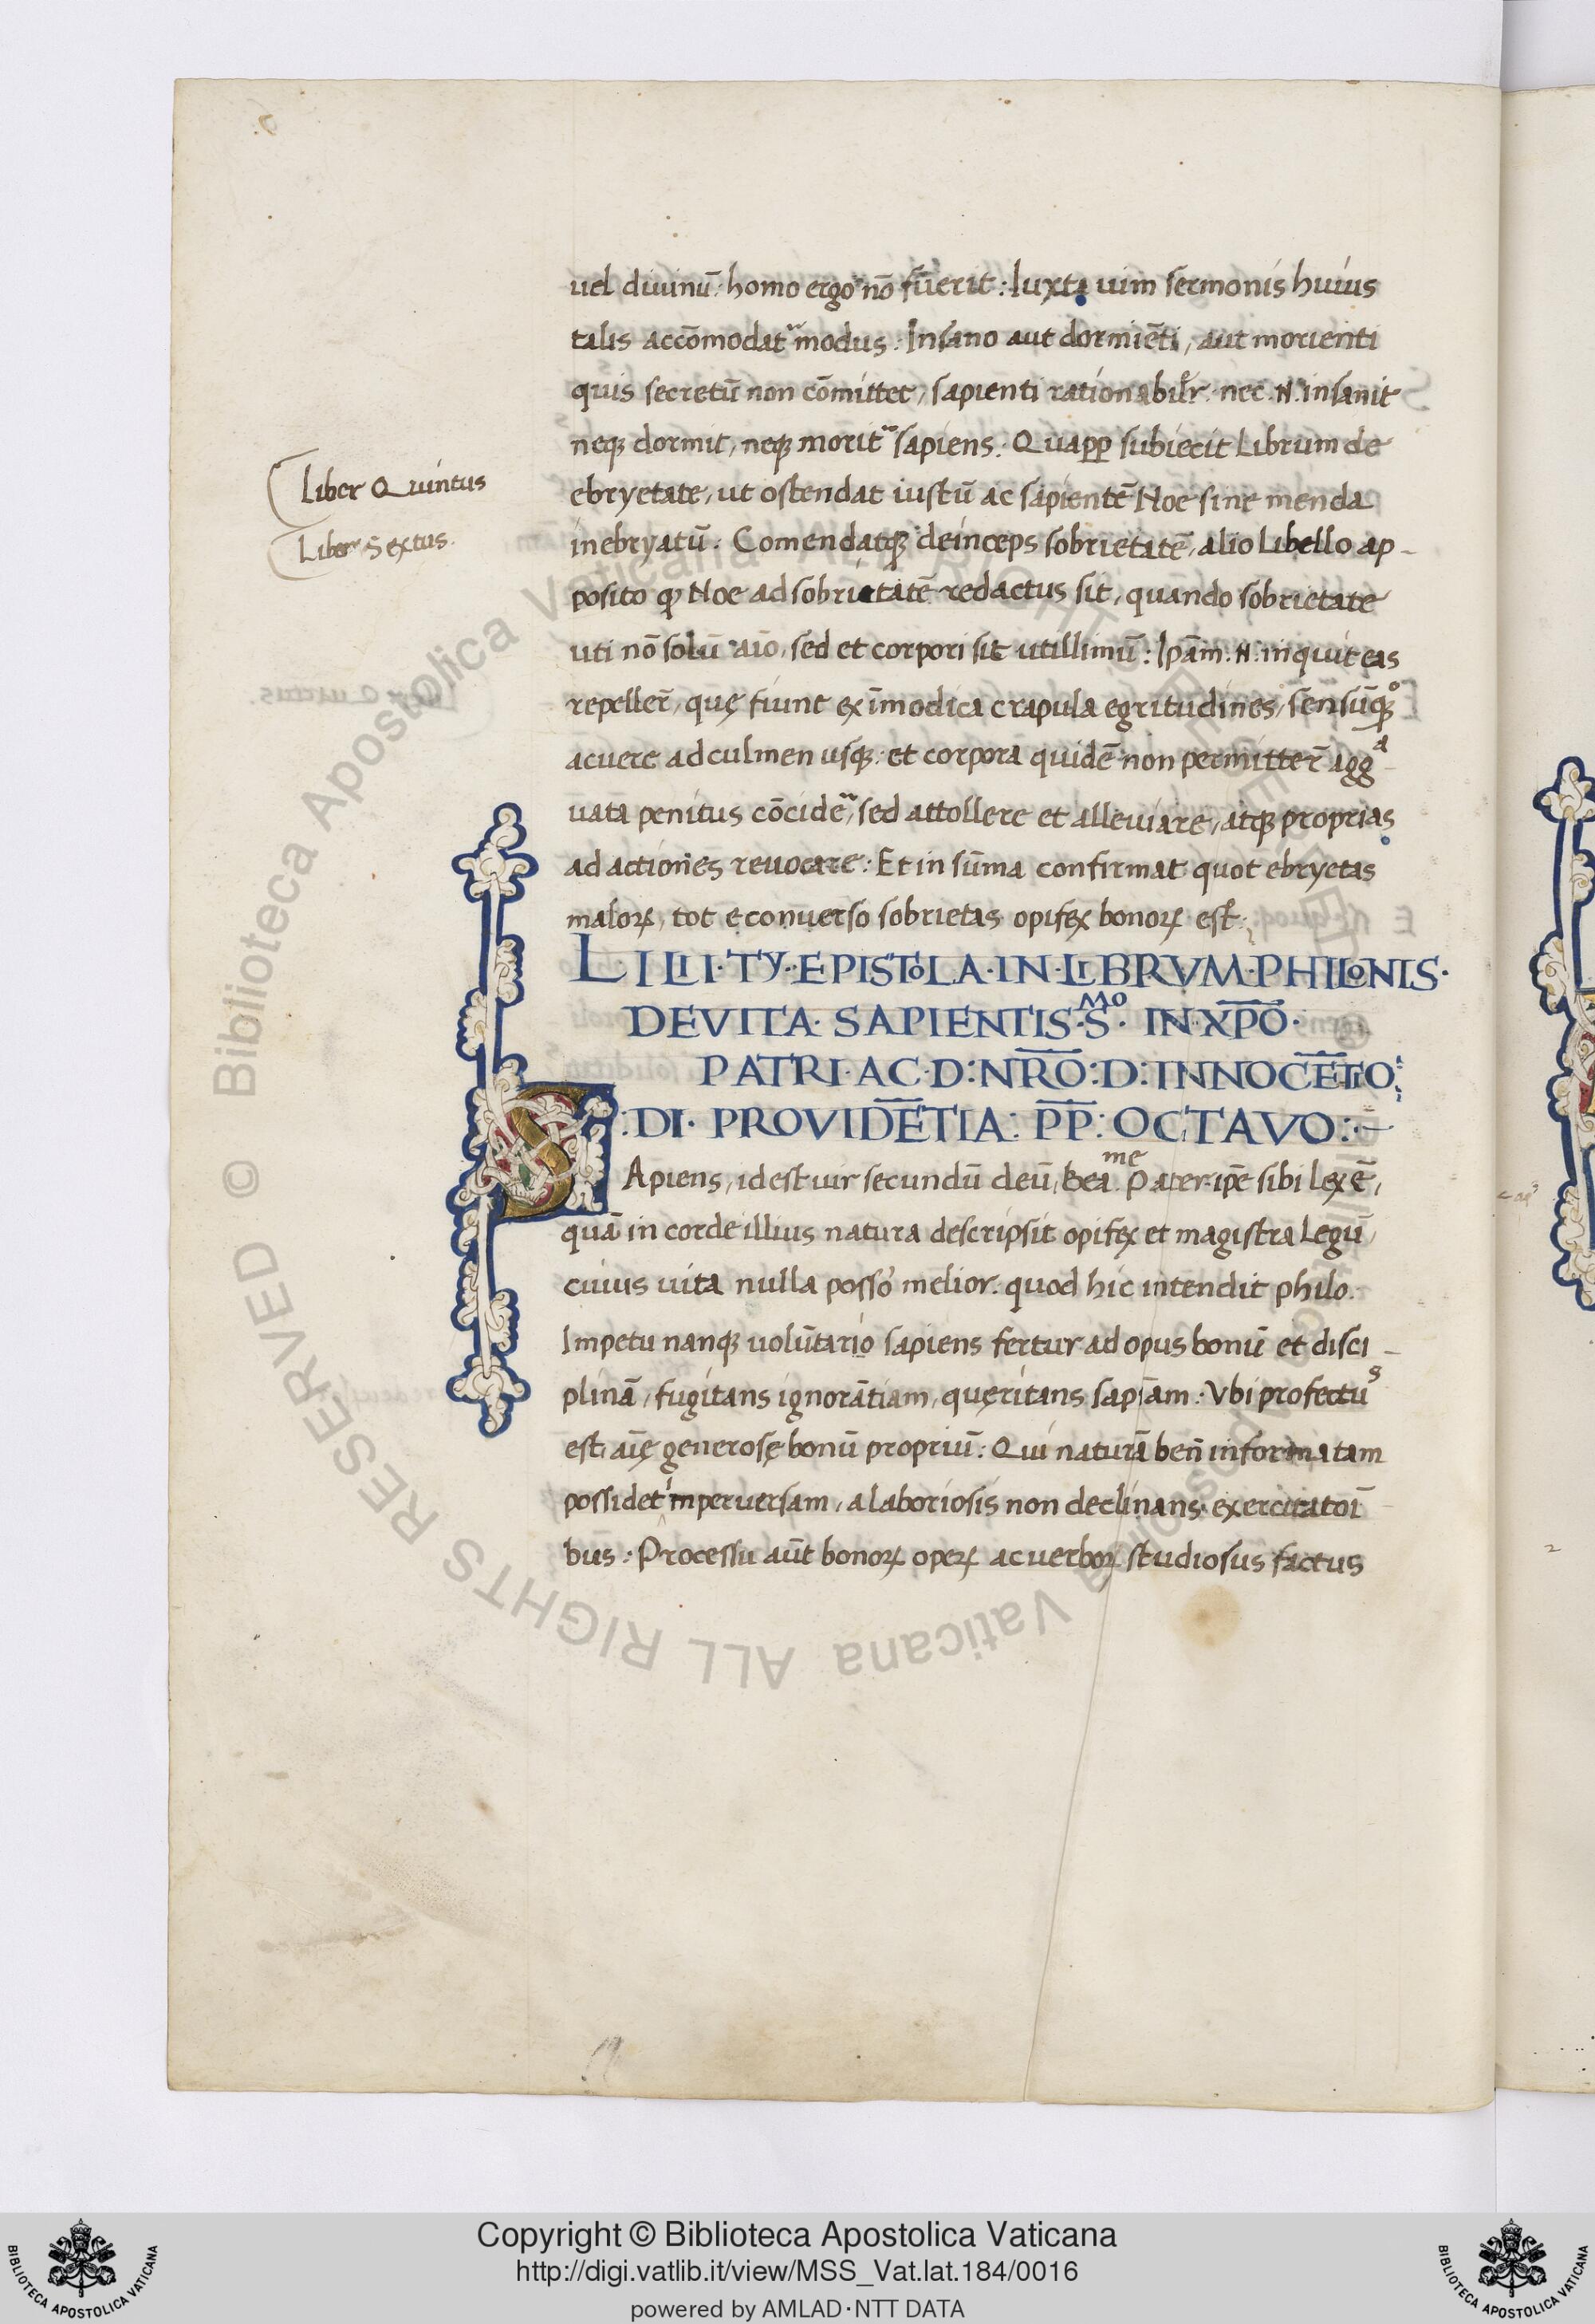 uel diuinū: homo ergo nō fũerit: Iuxta uim sermonis huius
talis accōmodat᷑ modus: Insano aut dormiēti, aut morienti
quis secretū non cōmittet, sapienti rationabilr̃. nec .N. insanit
neqꝫ dormit, neqꝫ morit᷑ sapiens. Quaꝓꝑ subiecit Librum de
Liber Quintus
ebryetate, ut ostendat iustū ac sapientē Noe sine menda
inebryatū. Comendatqꝫ deinceps sobrietatē, alio Libello ap-
Liber Sextus.
posito qꝫ Noe ad sobrietatē redactus sit, quando sobrietate
uti nō solū aīo, sed et corpori sit utillimū: Ipām .N. inquit eas
repeller̄, quę fiunt ex īmodica crapula egritudines, sensūqꝫ
acuere ad culmen usqꝫ: et corpora quidē non permitter̄ aggᵃ
uata penitus cōcider̄, sed attollere et alleuiare, atqꝫ proprias
ad actiones reuocare: Et in sūma confirmat quot ebryetas
maloꝝ, tot e conuerso sobrietas opifex bonoꝝ est:
LILII·TY·EPISTOLA·IN·LIBRVM·PHILONIS·
DE VITA· SAPIENTIS· S^MO· IN·XP̄O·
PATRI·AC·D:NR̄O:D:INNOCĒTIO:
:DI· PROVIDĒTIA: P̄P̄: OCTAVO:·-
SApiens, id est uir secundū deū, Bea^me Pater ip̄e sibi Lex ē,
quā in corde illius natura descripsit opifex et magistra Legū,
cuius uita nulla posso melior. quod hic intendit philo.
Impetu nanqꝫ volūtario sapiens fertur ad opus bonū et disci-
plinā, fugitans ignorātiam, quęritans sapīam: Vbi profectuˢ
est, aīę generosę bonū propriū: Qui naturā ben̄ informatam
possidet imperuersam, a laboriosis non declinans exercitatoī
bus: Processu aūt bonoꝝ opeꝝ ac uerboꝝ studiosus factus
Copyright © Biblioteca Apostolica Vaticana
http://digi.vatlib.it/view/MSS_Vat.lat.184/0016
powered by AMLAD·NTT DATA
BIBLIOTECA APOSTOLICA VATICANA
BIBLIOTECA APOSTOLICA VATICANA
© Biblioteca Apostolica Vaticana ALL RIGHTS RESERVED